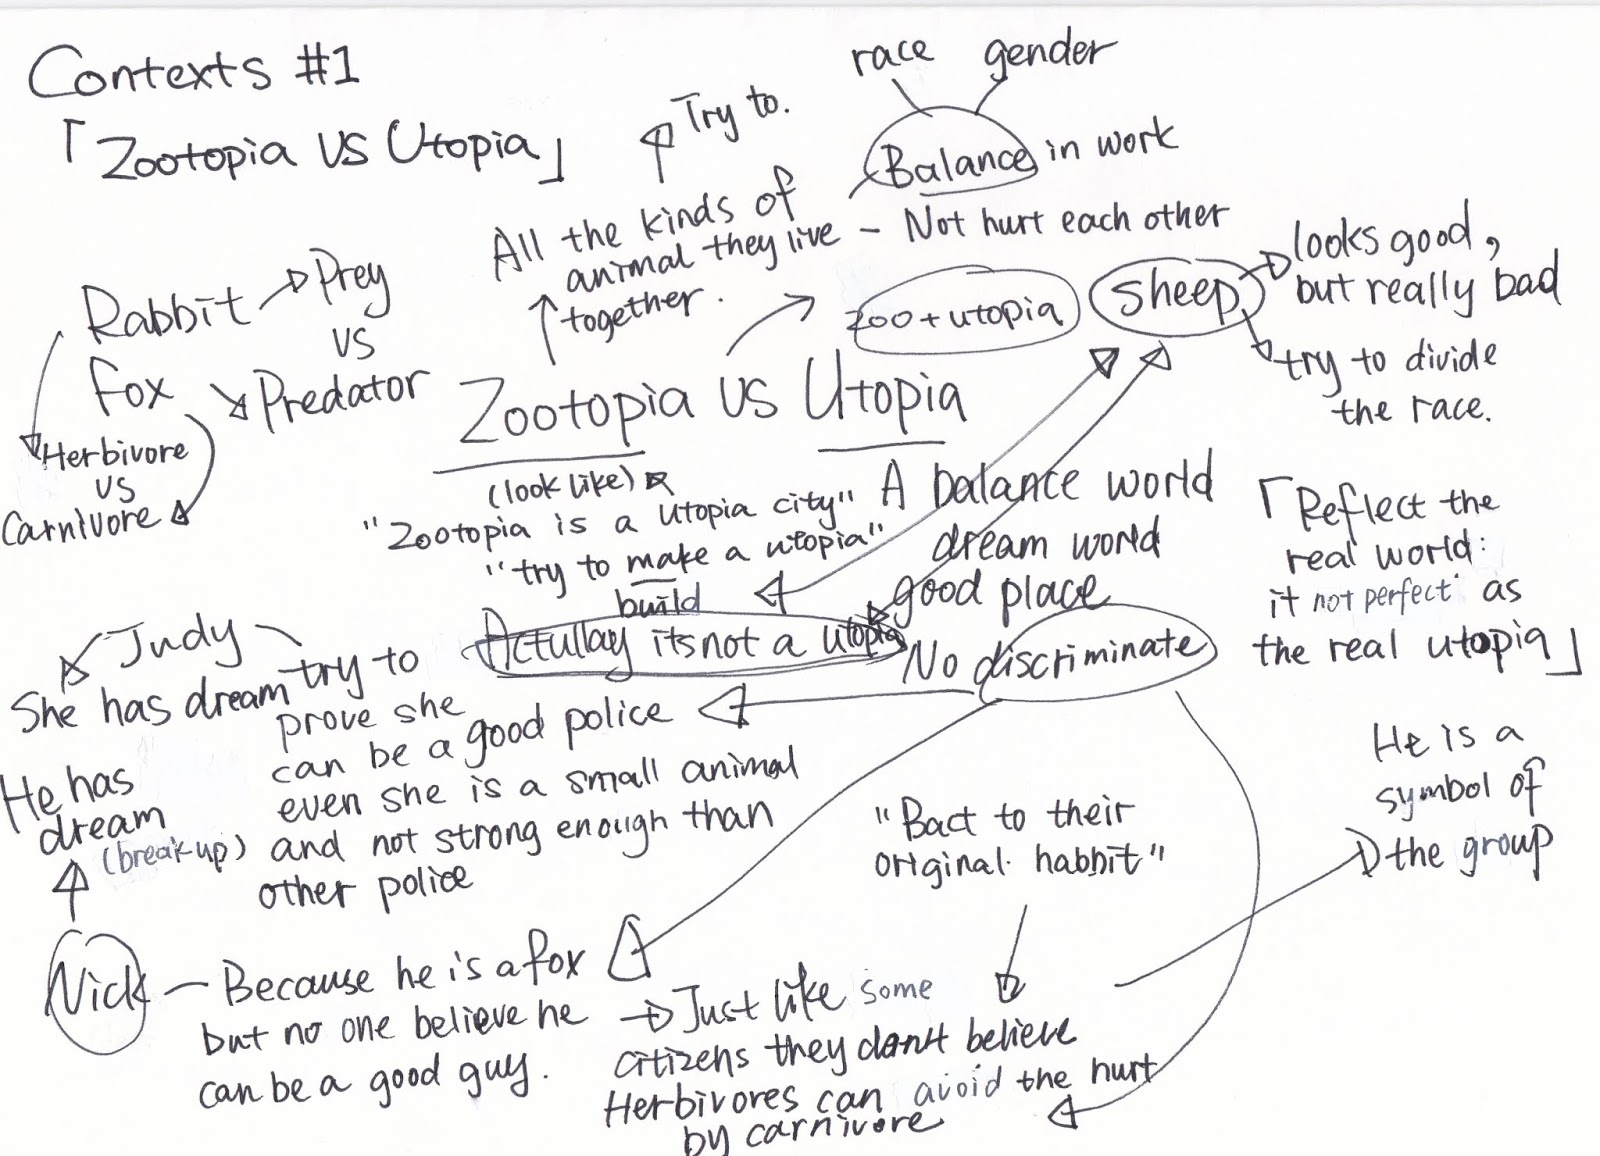 Contexts #1
「Zootopia VS Utopia」
Try to.
race
gender
Balance in work
All the kinds of
animal they live – Not hurt each other
together.
Rabbit
Prey
VS
Fox
Predator
Herbivore
VS
Carnivore
zoo+utopia
sheep
looks good,
but really bad
try to divide
the race.
Zootopia VS Utopia
(look like)
"Zootopia is a utopia city"
"try to make a utopia"
build
Actullay its not a utopia
A balance world
dream world
good place
No discriminate
「Reflect the
real world:
it not perfect as
the real utopia」
Judy
She has dream
try to
prove she
can be a good police
even she is a small animal
and not strong enough than
other police
He has
dream
(break up)
Nick – Because he is a fox
but no one believe he
can be a good guy.
"Bact to their
original habbit"
Just like some
citizens they don't believe
Herbivores can avoid the hurt
by carnivore
He is a
symbol of
the group